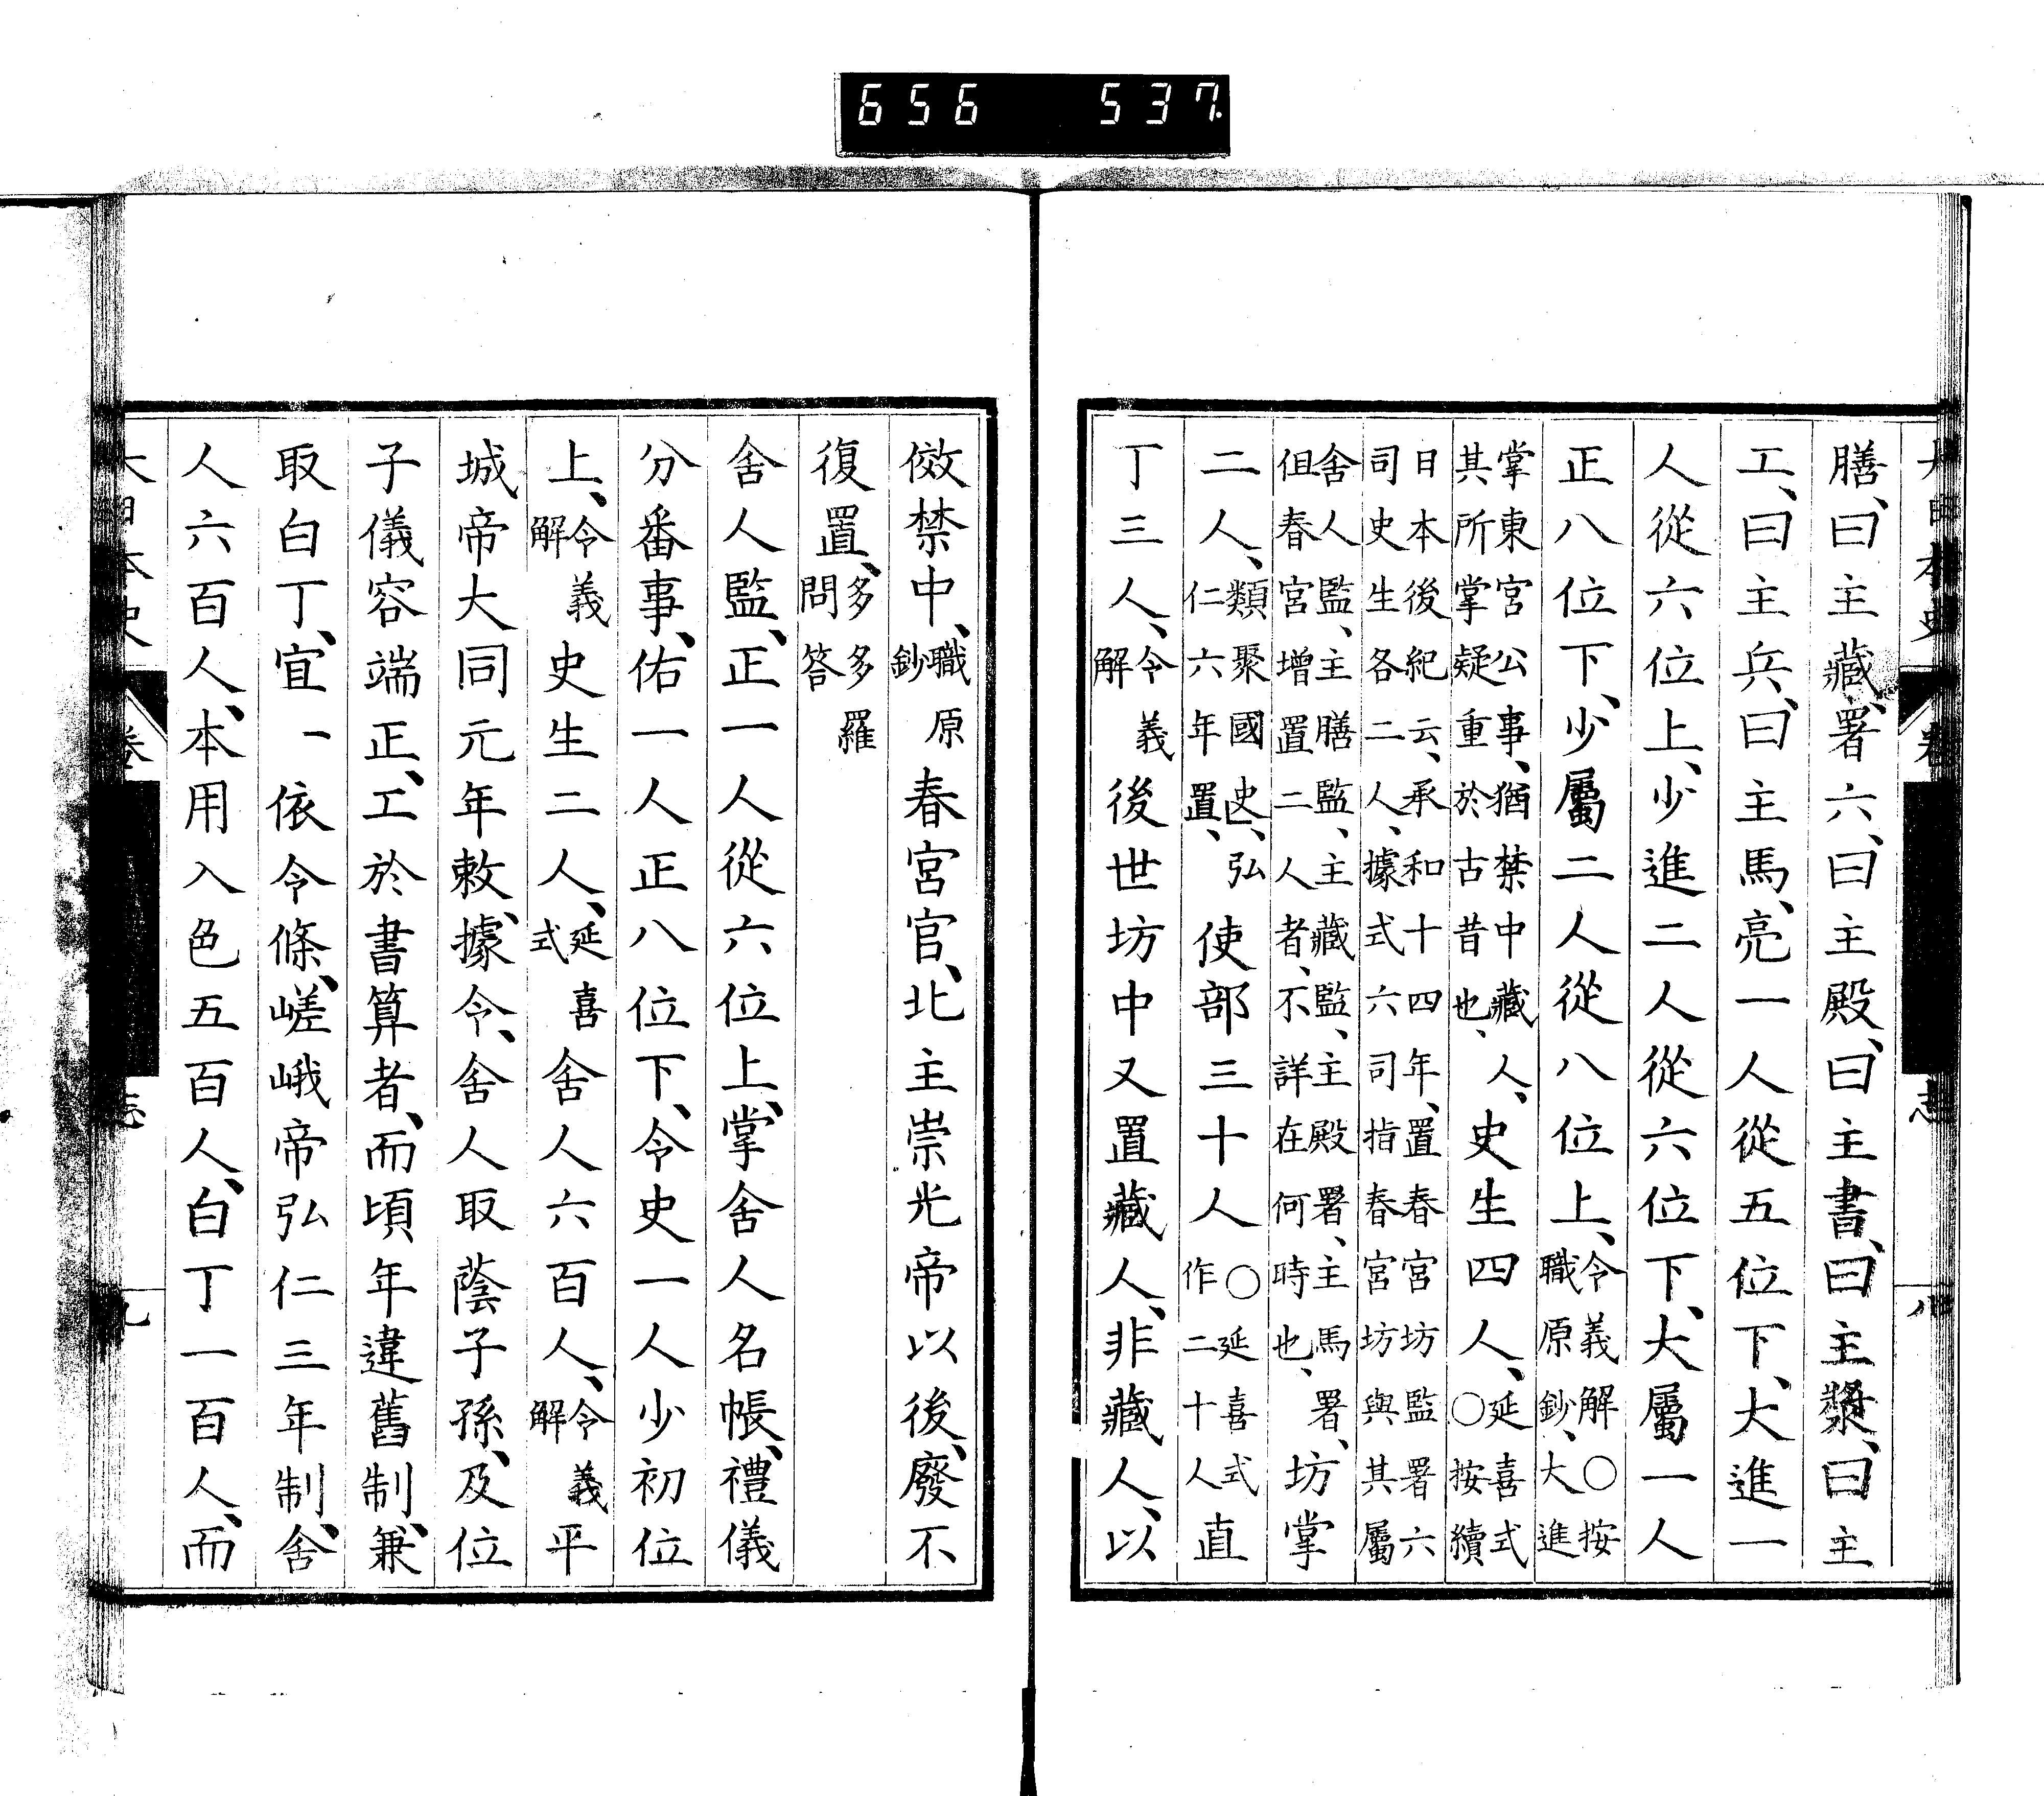 656 537.
大日本史 卷 志 八
膳、曰主藏、署六、曰主殿、曰主書、曰主漿、曰主
工、曰主兵、曰主馬、亮一人從五位下、大進一
人從六位上、少進二人從六位下、大屬一人
正八位下、少屬二人從八位上、令義解○按職原鈔、大進
掌東宮公事、猶禁中藏人、其所掌疑重於古昔也、史生四人、延喜式○按續
日本後紀云、承和十四年、置春宮坊監署六司史生各二人、據式六司指春宮坊與其屬
舍人監、主膳監、主藏監、主殿署、主馬署、但春宮增置二人者、不詳在何時也、坊掌
二人、類聚國史、弘仁六年置、使部三十人○延喜式作二十人直
丁三人、令義解後世坊中又置藏人、非藏人、以
傚禁中、職原鈔春宮官、北主崇光帝以後、廢不
復置、多多羅問答
舍人監、正一人從六位上、掌舍人名帳、禮儀
分番事、佑一人正八位下、令史一人少初位
上、令義解史生二人、延喜式舍人六百人、令義解平
城帝大同元年敕、據令、舍人取蔭子孫、及位
子儀容端正、工於書算者、而頃年違舊制、兼
取白丁、宜一依令條、嵯峨帝弘仁三年制、舍
人六百人、本用入色五百人、白丁一百人、而
大日本史 卷 志 九